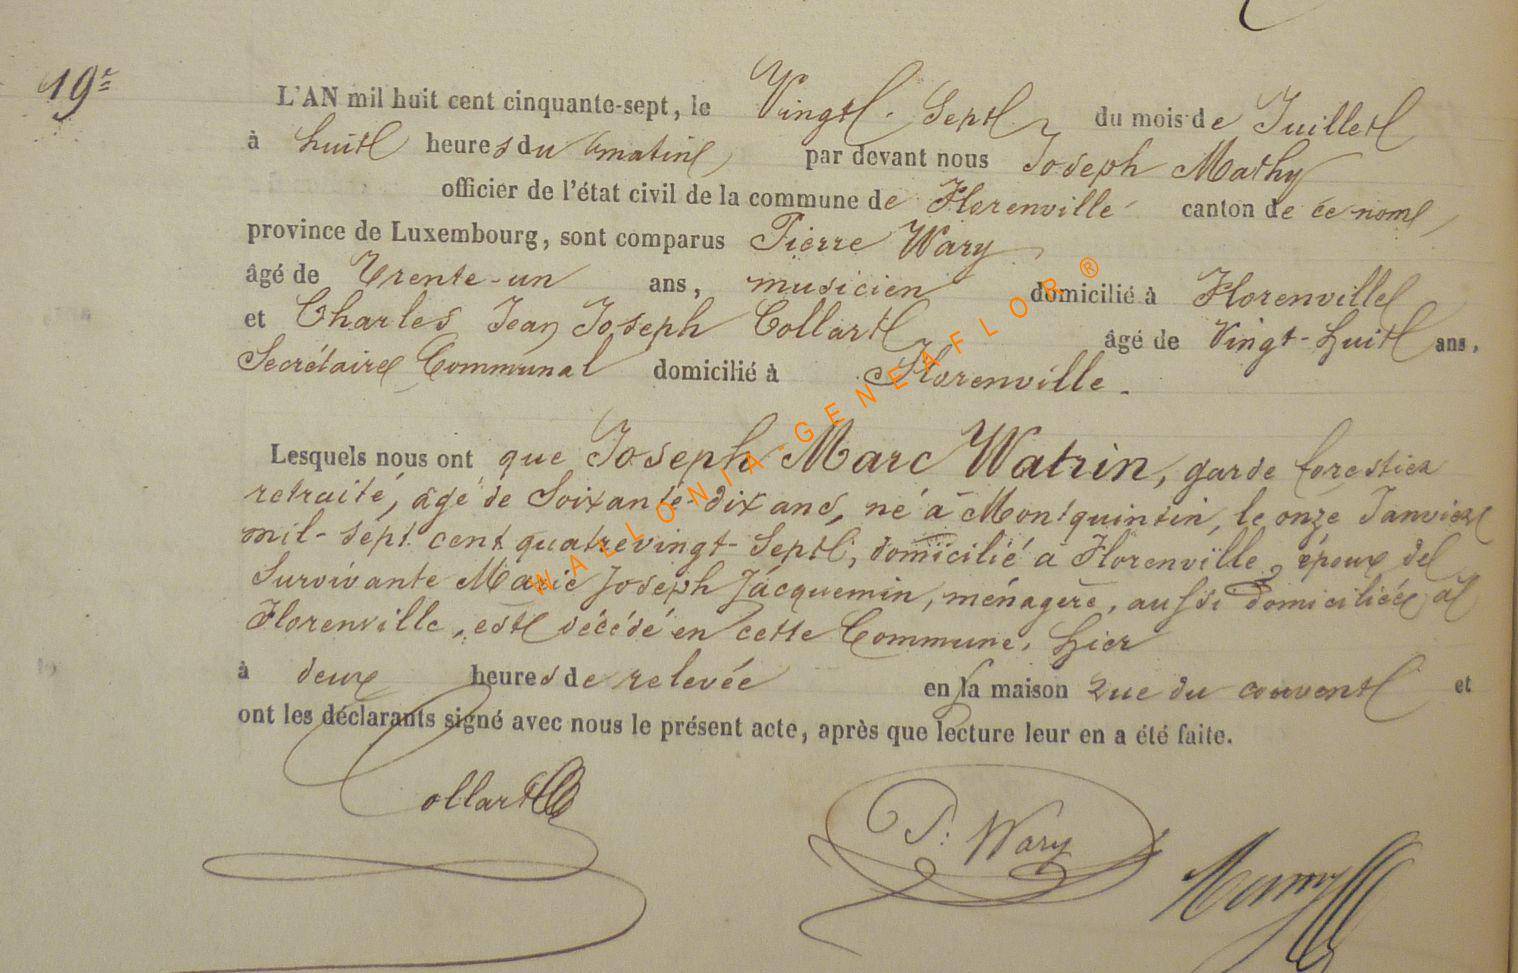 19e
L'AN mil huit cent cinquante-sept, le Vingt-Sept du mois de Juillet
à huit heures du matin, par devant nous Joseph Mathy
officier de l'état civil de la commune de Florenville canton de ce nom,
province de Luxembourg, sont comparus Pierre Wary
âgé de Trente-un ans, musicien domicilié à Florenville
et Charles Jean Joseph Collart âgé de Vingt-huit ans,
Secrétaire Communal domicilié à Florenville.
Lesquels nous ont que Joseph Marc Watrin, garde forestier
retraité, âgé de Soixante-dix ans, né à Montquintin, le onze Janvier
mil-sept cent quatrevingt-Sept, domicilié à Florenville, époux de
Survivante Marie Joseph Jacquemin, ménagère, aussi domiciliée à
Florenville, est décédé en cette Commune, hier
à deux heures de relevée en la maison rue du couvent et
ont les déclarants signé avec nous le présent acte, après que lecture leur en a été faite.
Collart P. Wary
WALLONIA-GENEAFLOR®